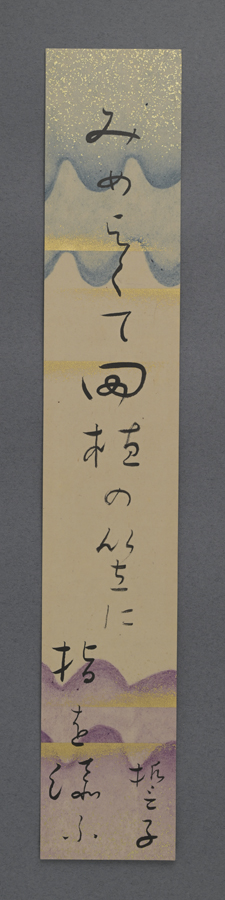 みめよくて田植の笠に
指を添ふ
誓子